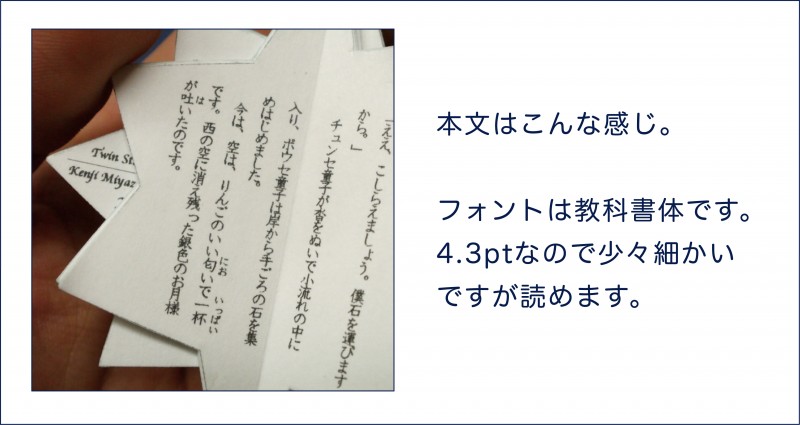 「ええ、こしらえましょう。僕石を運びます
から。」
チュンセ童子が沓をぬいで小流れの中に
入り、ポウセ童子は岸から手ごろの石を集
めはじめました。
今は、空は、りんごのいい匂いで一杯
にお いっぱい
です。西の空に消え残った銀色のお月様
は
が吐いたのです。
Twin St
Kenji Miyaz
本文はこんな感じ。
フォントは教科書体です。
4.3ptなので少々細かい
ですが読めます。